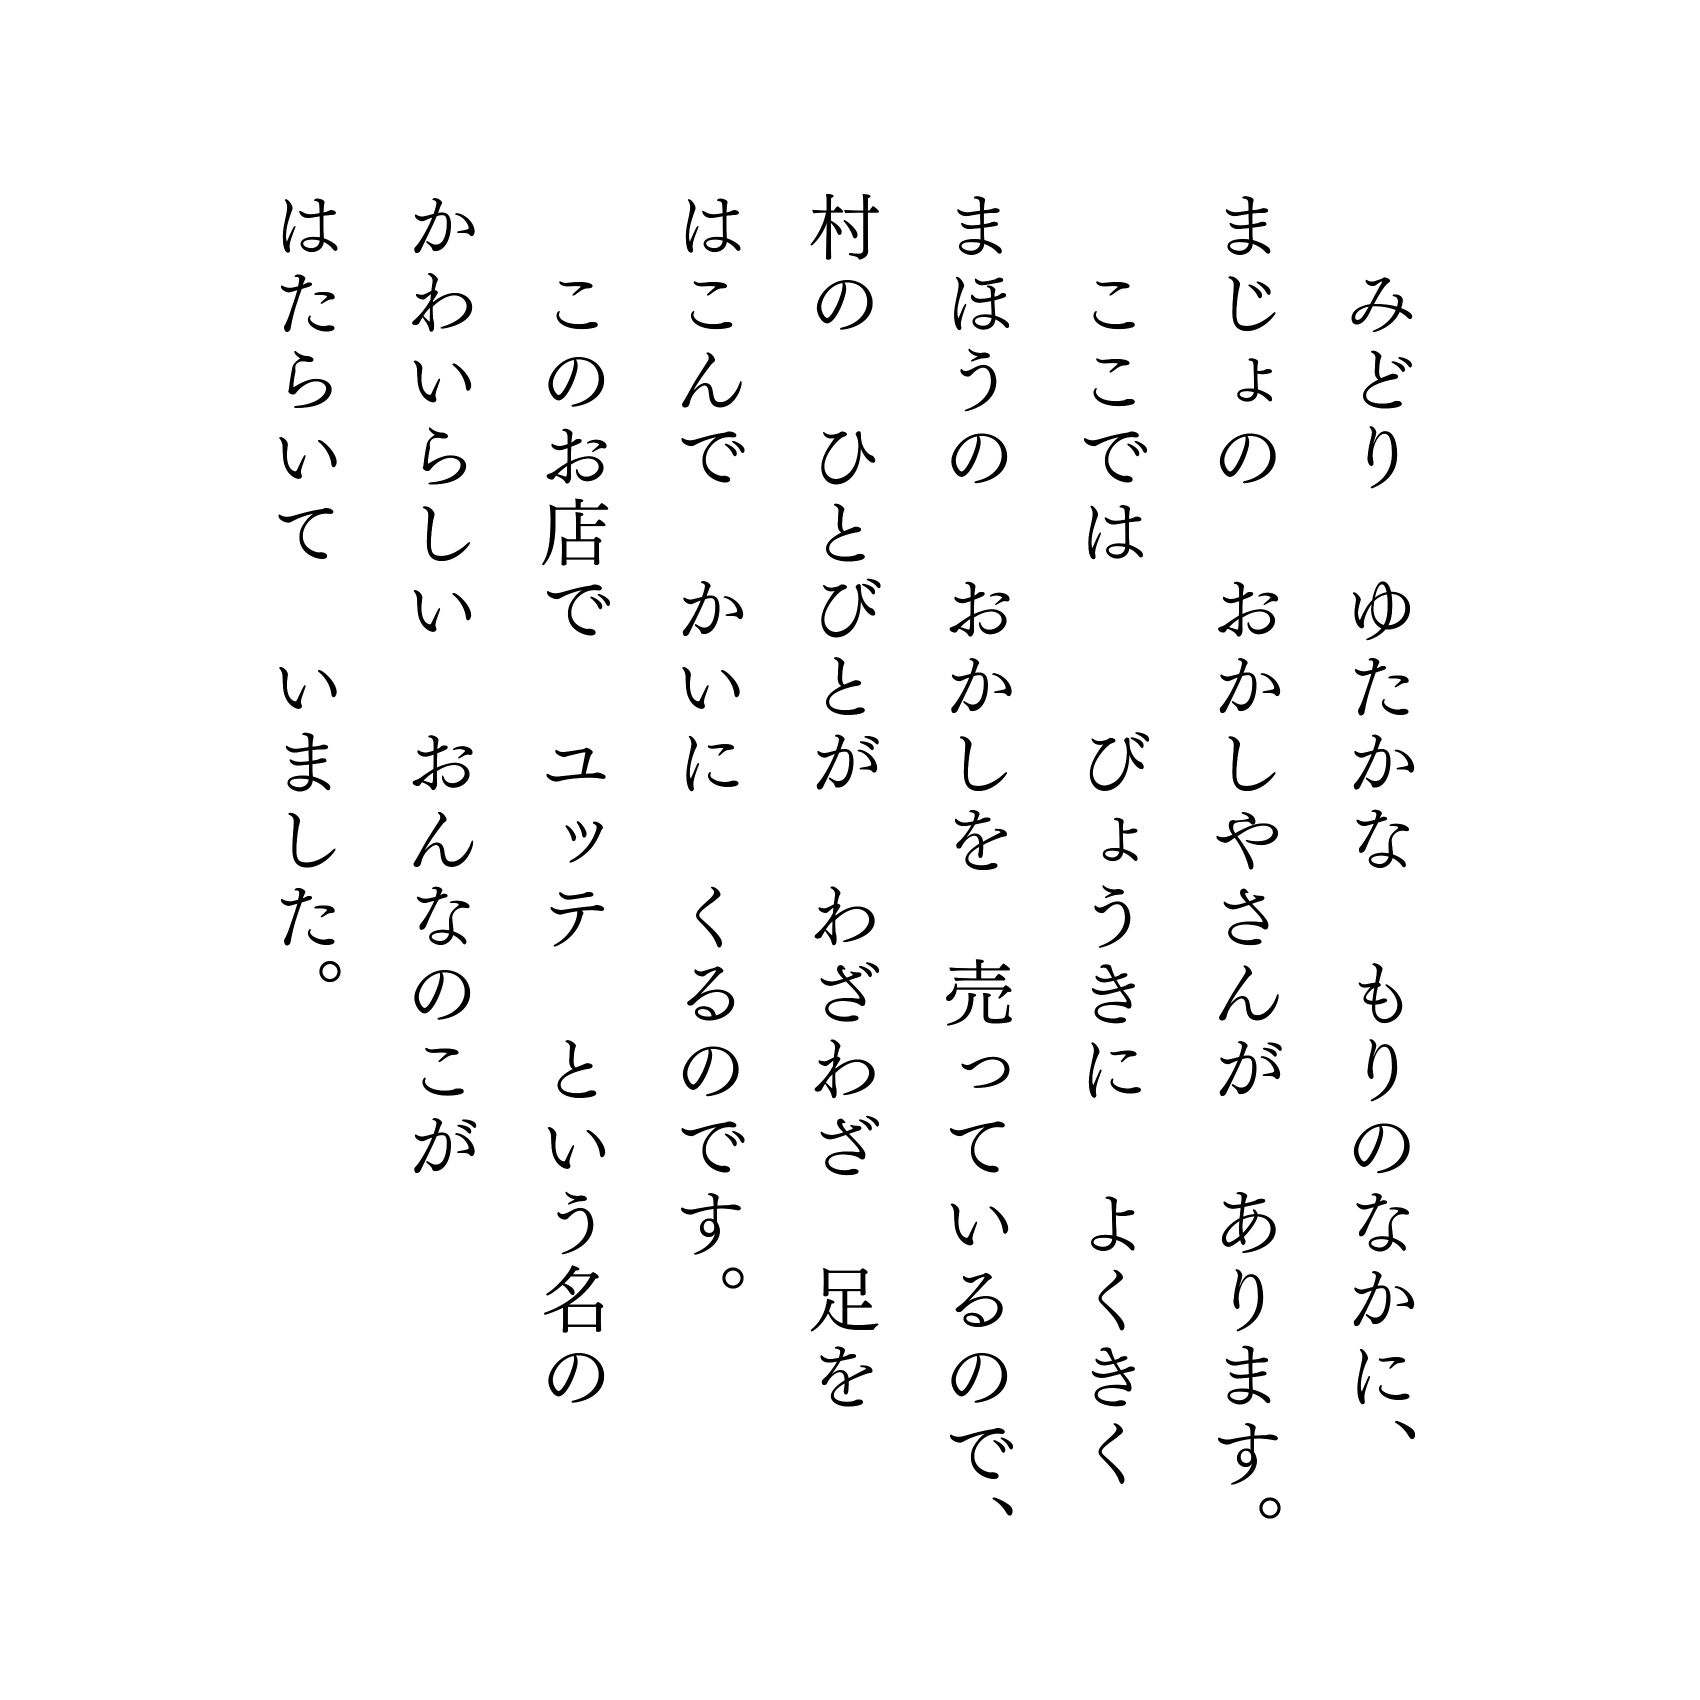 みどり　ゆたかな　もりのなかに、
まじょの　おかしやさんが　あります。
　ここでは　　びょうきに　よくきく
まほうの　おかしを　売っているので、
村の　ひとびとが　わざわざ　足を
はこんで　かいに　くるのです。
　このお店で　ユッテ　という名の
かわいらしい　おんなのこが
はたらいて　いました。